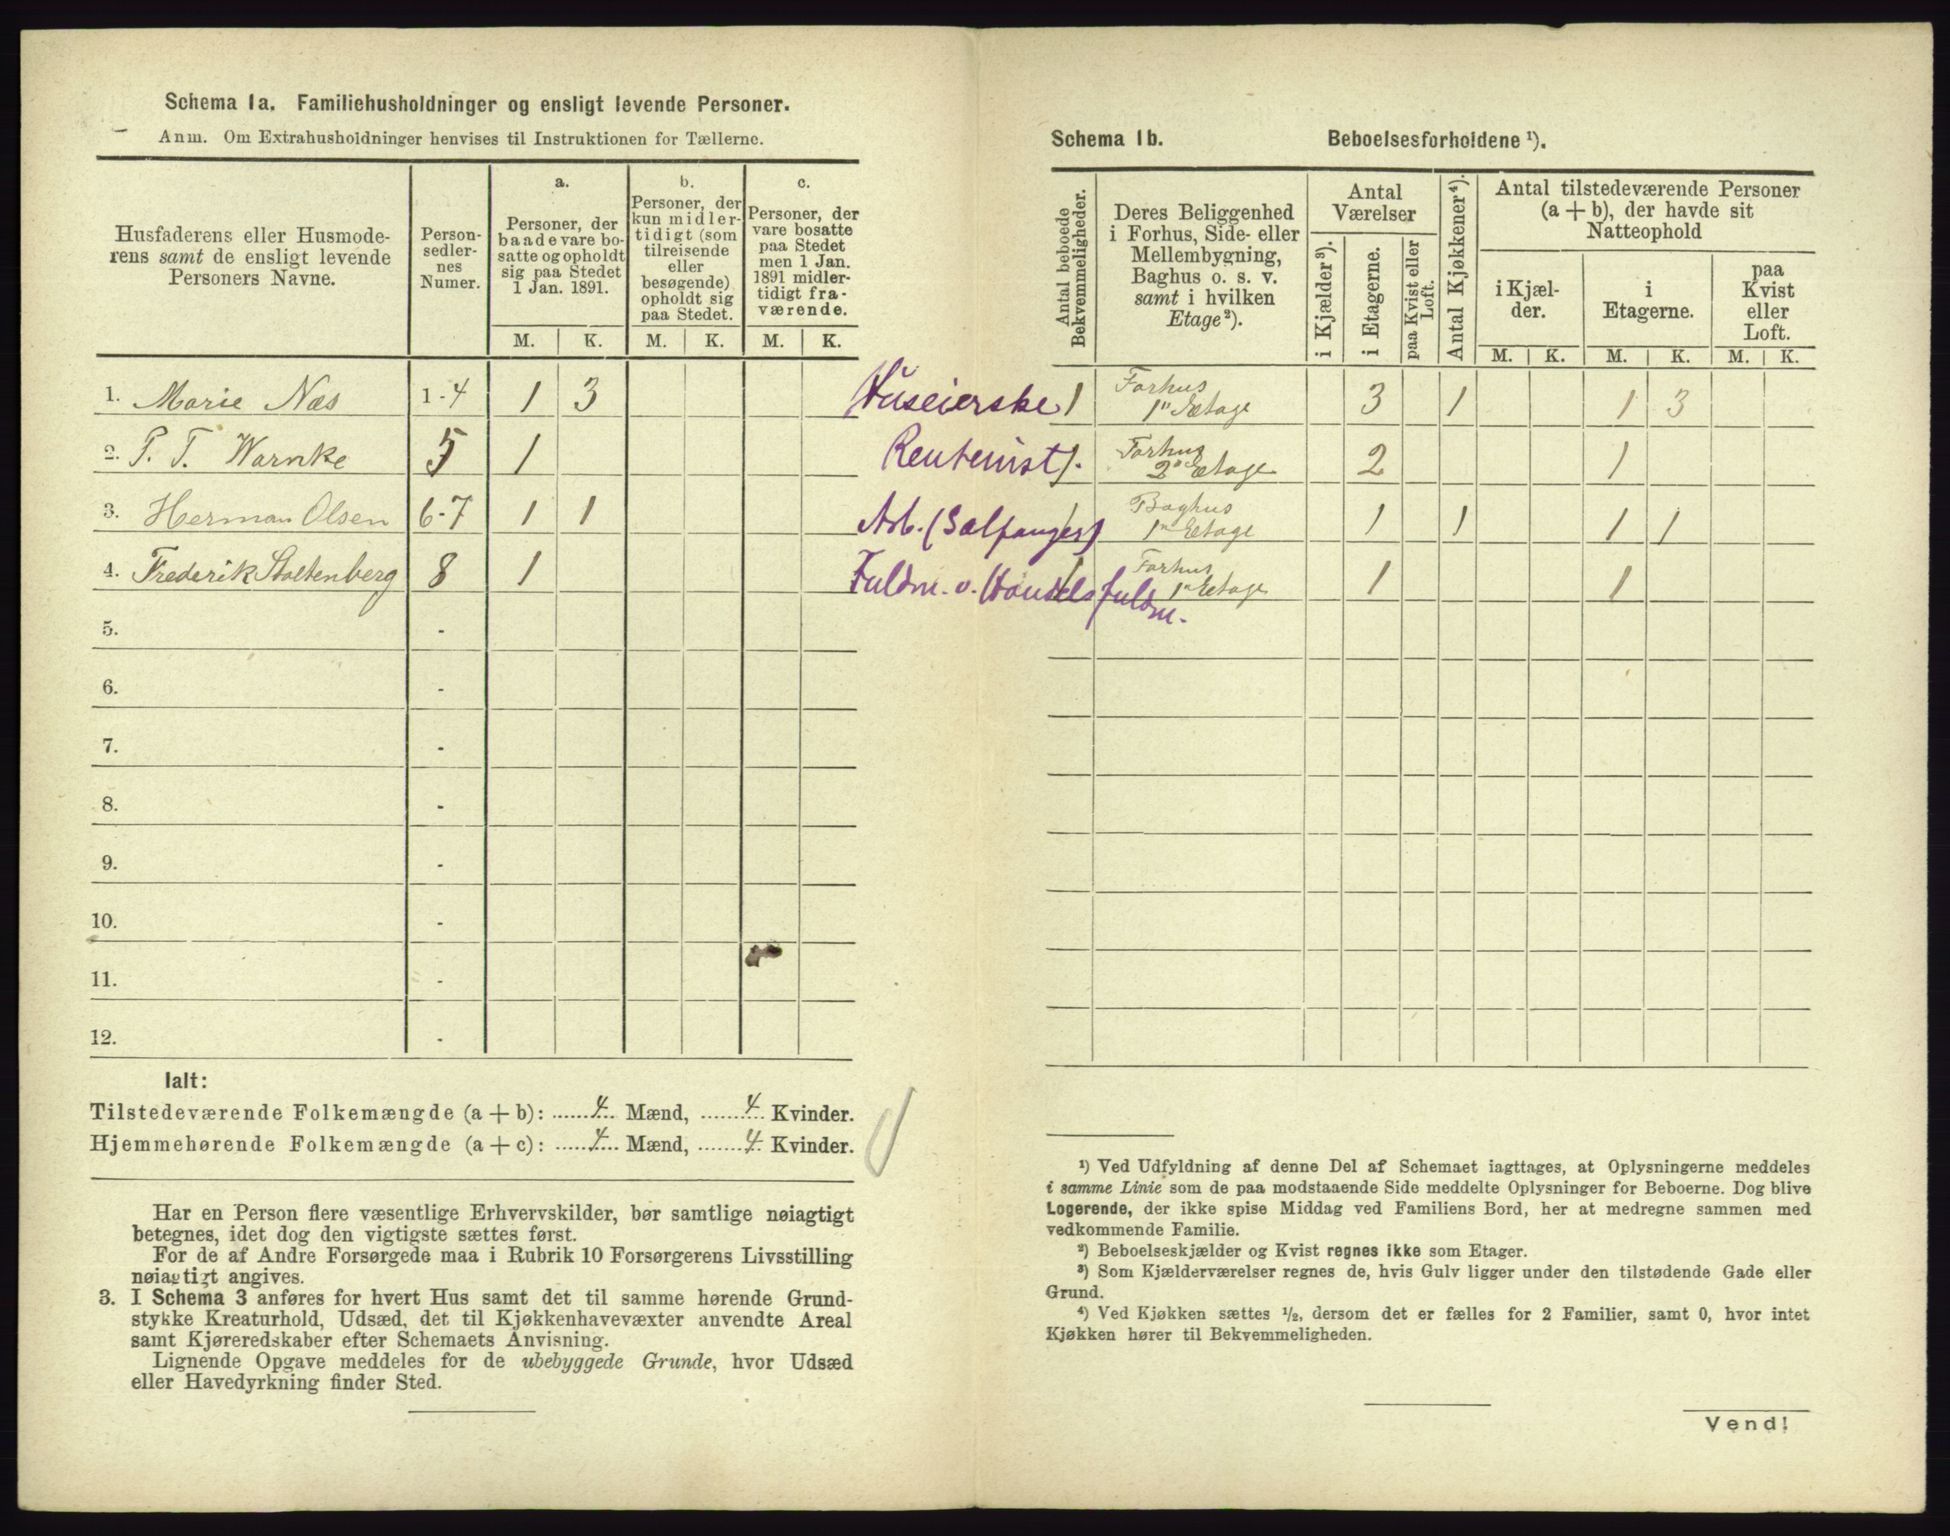 Schema 1a. Familiehusholdninger og ensligt levende Personer.
Anm. Om Extrahusholdninger henvises til Instruktionen for Tællerne.
Husfaderens eller Husmode-
rens samt de ensligt levende
Personers Navne.
Person-
sedler-
nes
Numer.
a.
Personer, der
baade vare bo-
satte og opholdt
sig paa Stedet
1 Jan. 1891.
b.
Personer, der
kun midler-
tidigt (som
tilreisende
eller
besøgende)
opholdt sig
paa Stedet.
c.
Personer, der
vare bosatte
paa Stedet
men 1 Jan.
1891 midler-
tidigt fra-
værende.
M. K. M. K. M. K.
1. Marie Næs 1-4 1 3
2. P. T. Warnke 5 1
3. Herman Olsen 6-7 1 1
4. Frederik Stoltenberg 8 1
5. -
6. -
7. -
8. -
9. -
10. -
11. -
12. -
Ialt:
Tilstedeværende Folkemængde (a + b): 4 Mænd, 4 Kvinder.
Hjemmehørende Folkemængde (a + c): 4 Mænd, 4 Kvinder.
Har en Person flere væsentlige Erhvervskilder, bør samtlige nøiagtigt
betegnes, idet dog den vigtigste sættes først.
For de af Andre Forsørgede maa i Rubrik 10 Forsørgerens Livsstilling
nøiagtigt angives.
3. I Schema 3 anføres for hvert Hus samt det til samme hørende Grund-
stykke Kreaturhold, Udsæd, det til Kjøkkenhavevæxter anvendte Areal
samt Kjøreredskaber efter Schemaets Anvisning.
Lignende Opgave meddeles for de ubebyggede Grunde, hvor Udsæd
eller Havedyrkning finder Sted.
Schema 1b. Beboelsesforholdene ¹).
Antal beboede
Bekvemmeligheder.
Deres Beliggenhed
i Forhus, Side- eller
Mellembygning,
Baghus o. s. v.
samt i hvilken
Etage²).
Antal
Værelser
i Kjælder³).
i Etagerne.
paa Kvist eller
Loft.
Antal Kjøkkener⁴).
Antal tilstedeværende Personer
(a + b), der havde sit
Natteophold
i Kjæl-
der.
i
Etagerne.
paa
Kvist
eller
Loft.
M. K. M. K. M. K.
Huseierske 1 Forhus
1" Etage 3 1 1 3
Rentenist 1. Forhus
2" Etage 2 1
Arb. (Sælfanger) 1 Baghus
1" Etage 1 1 1 1
Fuldm. o. Handelsfuldm. 1 Forhus
1" Etage 1 1
¹) Ved Udfyldning af denne Del af Schemaet iagttages, at Oplysningerne meddeles
i samme Linie som de paa modstaaende Side meddelte Oplysninger for Beboerne. Dog blive
Logerende, der ikke spise Middag ved Familiens Bord, her at medregne sammen med
vedkommende Familie.
²) Beboelseskjælder og Kvist regnes ikke som Etager.
³) Som Kjælderværelser regnes de, hvis Gulv ligger under den tilstødende Gade eller
Grund.
⁴) Ved Kjøkken sættes ½, dersom det er fælles for 2 Familier, samt 0, hvor intet
Kjøkken hører til Bekvemmeligheden.
Vend!